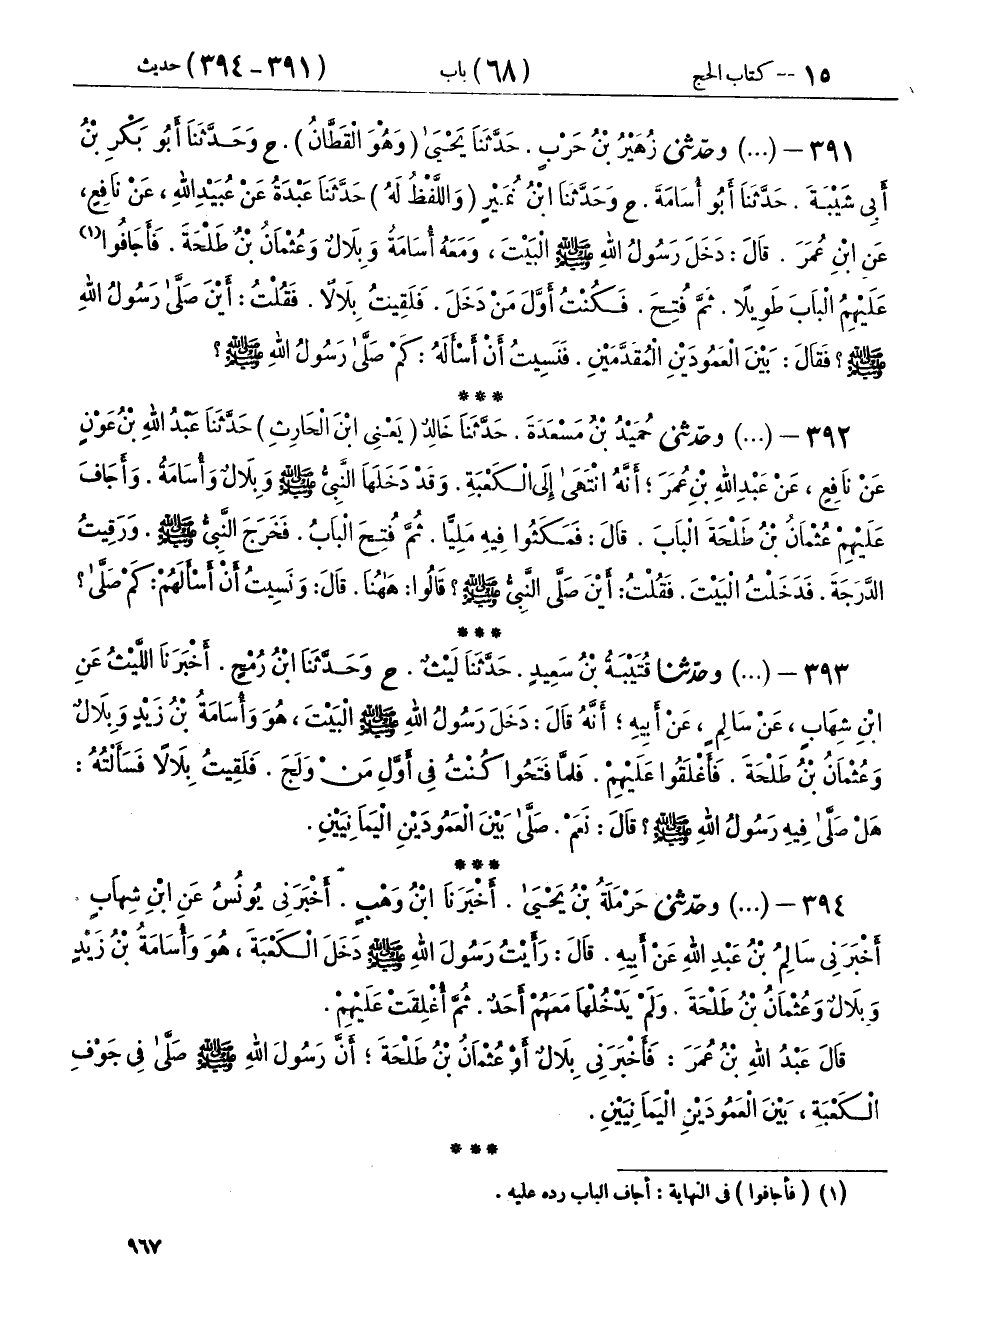 ١٥ -- كتاب الحج (٦٨) باب (٣٩١ - ٣٩٤) حديث
٣٩١ – (...) وحَدَّثَنِي زُهَيْرُ بْنُ حَرْبٍ . حَدَّثَنَا يَحْيَىٰ ( وَهُوَ الْقَطَّانُ ) . ح وَحَدَّثَنَا أَبُو بَكْرِ بْنُ
أَبِي شَيْبَةَ . حَدَّثَنَا أَبُو أُسَامَةَ . ح وَحَدَّثَنَا ابْنُ نُمَيْرٍ ( وَاللَّفْظُ لَهُ ) حَدَّثَنَا عَبْدَةُ عَنْ عُبَيْدِاللهِ ، عَنْ نَافِعٍ،
عَنِ ابْنِ عُمَرَ . قَالَ : دَخَلَ رَسُولُ اللهِ ﷺ الْبَيْتَ ، وَمَعَهُ أُسَامَةُ وَبِلَالٌ وَعُثْمَانُ بْنُ طَلْحَةَ . فَأَجَافُوا(١)
عَلَيْهِمُ الْبَابَ طَوِيلًا . ثُمَّ فُتِحَ . فَكُنْتُ أَوَّلَ مَنْ دَخَلَ . فَلَقِيتُ بِلَالًا . فَقُلْتُ : أَيْنَ صَلَّىٰ رَسُولُ اللهِ
ﷺ ؟ فَقَالَ : بَيْنَ الْعَمُودَيْنِ الْمُقَدَّمَيْنِ . فَنَسِيتُ أَنْ أَسْأَلَهُ : كَمْ صَلَّىٰ رَسُولُ اللهِ ﷺ ؟
***
٣٩٢ – (...) وحَدَّثَنِي حُمَيْدُ بْنُ مَسْعَدَةَ . حَدَّثَنَا خَالِدٌ ( يَعْنِي ابْنَ الْحَارِثِ ) حَدَّثَنَا عَبْدُ اللهِ بْنُ عَوْنٍ
عَنْ نَافِعٍ ، عَنْ عَبْدِ اللهِ بْنِ عُمَرَ ؛ أَنَّهُ انْتَهَىٰ إِلَى الْكَعْبَةِ . وَقَدْ دَخَلَهَا النَّبِيُّ ﷺ وَبِلَالٌ وَأُسَامَةُ . وَأَجَافَ
عَلَيْهِمْ عُثْمَانُ بْنُ طَلْحَةَ الْبَابَ . قَالَ : فَمَكَثُوا فِيهِ مَلِيًّا . ثُمَّ فُتِحَ الْبَابُ . فَخَرَجَ النَّبِيُّ ﷺ . وَرَقِيتُ
الدَّرَجَةَ . فَدَخَلْتُ الْبَيْتَ . فَقُلْتُ : أَيْنَ صَلَّى النَّبِيُّ ﷺ ؟ قَالُوا : هَهُنَا . قَالَ : وَنَسِيتُ أَنْ أَسْأَلَهُمْ : كَمْ صَلَّىٰ ؟
***
٣٩٣ – (...) وحَدَّثَنَا قُتَيْبَةُ بْنُ سَعِيدٍ . حَدَّثَنَا لَيْثٌ . ح وَحَدَّثَنَا ابْنُ رُمْحٍ . أَخْبَرَنَا اللَّيْثُ عَنِ
ابْنِ شِهَابٍ ، عَنْ سَالِمٍ ، عَنْ أَبِيهِ ؛ أَنَّهُ قَالَ : دَخَلَ رَسُولُ اللهِ ﷺ الْبَيْتَ ، هُوَ وَأُسَامَةُ بْنُ زَيْدٍ وَبِلَالٌ
وَعُثْمَانُ بْنُ طَلْحَةَ . فَأَغْلَقُوا عَلَيْهِمْ . فَلَمَّا فَتَحُوا كُنْتُ فِي أَوَّلِ مَنْ وَلَجَ . فَلَقِيتُ بِلَالًا فَسَأَلْتُهُ :
هَلْ صَلَّىٰ فِيهِ رَسُولُ اللهِ ﷺ ؟ قَالَ : نَعَمْ . صَلَّىٰ بَيْنَ الْعَمُودَيْنِ الْيَمَانِيَيْنِ .
***
٣٩٤ – (...) وحَدَّثَنِي حَرْمَلَةُ بْنُ يَحْيَىٰ . أَخْبَرَنَا ابْنُ وَهْبٍ . أَخْبَرَنِي يُونُسُ عَنِ ابْنِ شِهَابٍ .
أَخْبَرَنِي سَالِمُ بْنُ عَبْدِ اللهِ عَنْ أَبِيهِ . قَالَ : رَأَيْتُ رَسُولَ اللهِ ﷺ دَخَلَ الْكَعْبَةَ ، هُوَ وَأُسَامَةُ بْنُ زَيْدٍ
وَبِلَالٌ وَعُثْمَانُ بْنُ طَلْحَةَ . وَلَمْ يَدْخُلْهَا مَعَهُمْ أَحَدٌ . ثُمَّ أُغْلِقَتْ عَلَيْهِمْ .
قَالَ عَبْدُ اللهِ بْنُ عُمَرَ : فَأَخْبَرَنِي بِلَالٌ أَوْ عُثْمَانُ بْنُ طَلْحَةَ ؛ أَنَّ رَسُولَ اللهِ ﷺ صَلَّىٰ فِي جَوْفِ
الْكَعْبَةِ ، بَيْنَ الْعَمُودَيْنِ الْيَمَانِيَيْنِ .
***
(١) ( فأجافوا ) فى النهاية : أجاف الباب رده عليه .
٩٦٧